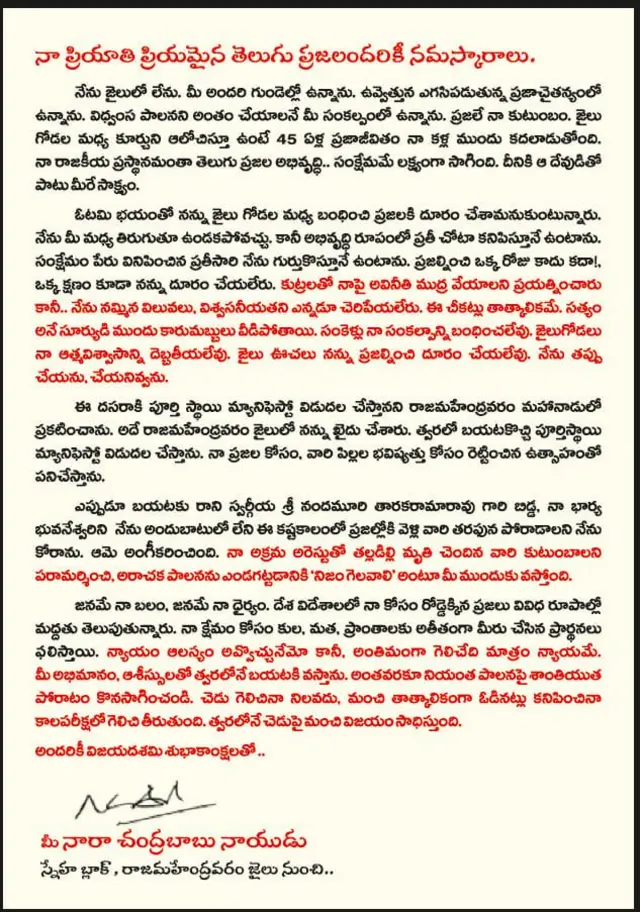 నా ప్రియాతి ప్రియమైన తెలుగు ప్రజలందరికీ నమస్కారాలు.
నేను జైలులో లేను. మీ అందరి గుండెల్లో ఉన్నాను. ఉవ్వెత్తున ఎగసిపడుతున్న ప్రజాచైతన్యంలో
ఉన్నాను. విధ్వంస పాలనని అంతం చేయాలనే మీ సంకల్పంలో ఉన్నాను. ప్రజలే నా కుటుంబం. జైలు
గోడల మధ్య కూర్చుని ఆలోచిస్తూ ఉంటే 45 ఏళ్ల ప్రజాజీవితం నా కళ్ల ముందు కదలాడుతోంది.
నా రాజకీయ ప్రస్థానమంతా తెలుగు ప్రజల అభివృద్ధి.. సంక్షేమమే లక్ష్యంగా సాగింది. దీనికి ఆ దేవుడితో
పాటు మీరే సాక్ష్యం.
ఓటమి భయంతో నన్ను జైలు గోడల మధ్య బంధించి ప్రజలకి దూరం చేశామనుకుంటున్నారు.
నేను మీ మధ్య తిరుగుతూ ఉండకపోవచ్చు. కానీ అభివృద్ధి రూపంలో ప్రతీ చోటా కనిపిస్తూనే ఉంటాను.
సంక్షేమం పేరు వినిపించిన ప్రతీసారి నేను గుర్తుకొస్తూనే ఉంటాను. ప్రజల్నించి ఒక్క రోజు కాదు కదా!,
ఒక్క క్షణం కూడా నన్ను దూరం చేయలేరు. కుట్రలతో నాపై అవినీతి ముద్ర వేయాలని ప్రయత్నించారు
కానీ.. నేను నమ్మిన విలువలు, విశ్వసనీయతని ఎన్నడూ చెరిపేయలేరు. ఈ చీకట్లు తాత్కాలికమే. సత్యం
అనే సూర్యుడి ముందు కారుమబ్బులు వీడిపోతాయి. సంకెళ్లు నా సంకల్పాన్ని బంధించలేవు. జైలుగోడలు
నా ఆత్మవిశ్వాసాన్ని దెబ్బతీయలేవు. జైలు ఊచలు నన్ను ప్రజల్నించి దూరం చేయలేవు. నేను తప్పు
చేయను, చేయనివ్వను.
ఈ దసరాకి పూర్తి స్థాయి మ్యానిఫెస్టో విడుదల చేస్తానని రాజమహేంద్రవరం మహానాడులో
ప్రకటించాను. అదే రాజమహేంద్రవరం జైలులో నన్ను ఖైదు చేశారు. త్వరలో బయటకొచ్చి పూర్తిస్థాయి
మ్యానిఫెస్టో విడుదల చేస్తాను. నా ప్రజల కోసం, వారి పిల్లల భవిష్యత్తు కోసం రెట్టించిన ఉత్సాహంతో
పనిచేస్తాను.
ఎప్పుడూ బయటకు రాని స్వర్గీయ శ్రీ నందమూరి తారకరామారావు గారి బిడ్డ, నా భార్య
భువనేశ్వరిని నేను అందుబాటులో లేని ఈ కష్టకాలంలో ప్రజల్లోకి వెళ్లి వారి తరఫున పోరాడాలని నేను
కోరాను. ఆమె అంగీకరించింది. నా అక్రమ అరెస్టుతో తల్లడిల్లి మృతి చెందిన వారి కుటుంబాలని
పరామర్శించి, అరాచక పాలనను ఎండగట్టడానికి 'నిజం గెలవాలి' అంటూ మీ ముందుకు వస్తోంది.
జనమే నా బలం, జనమే నా ధైర్యం. దేశ విదేశాలలో నా కోసం రోడ్డెక్కిన ప్రజలు వివిధ రూపాల్లో
మద్దతు తెలుపుతున్నారు. నా క్షేమం కోసం కుల, మత, ప్రాంతాలకు అతీతంగా మీరు చేసిన ప్రార్థనలు
ఫలిస్తాయి. న్యాయం ఆలస్యం అవ్వొచ్చునేమో కానీ, అంతిమంగా గెలిచేది మాత్రం న్యాయమే.
మీ అభిమానం, ఆశీస్సులతో త్వరలోనే బయటకి వస్తాను. అంతవరకూ నియంత పాలనపై శాంతియుత
పోరాటం కొనసాగించండి. చెడు గెలిచినా నిలవదు, మంచి తాత్కాలికంగా ఓడినట్లు కనిపించినా
కాలపరీక్షలో గెలిచి తీరుతుంది. త్వరలోనే చెడుపై మంచి విజయం సాధిస్తుంది.
అందరికీ విజయదశమి శుభాకాంక్షలతో..
మీ నారా చంద్రబాబు నాయుడు
స్నేహ బ్లాక్, రాజమహేంద్రవరం జైలు నుంచి..